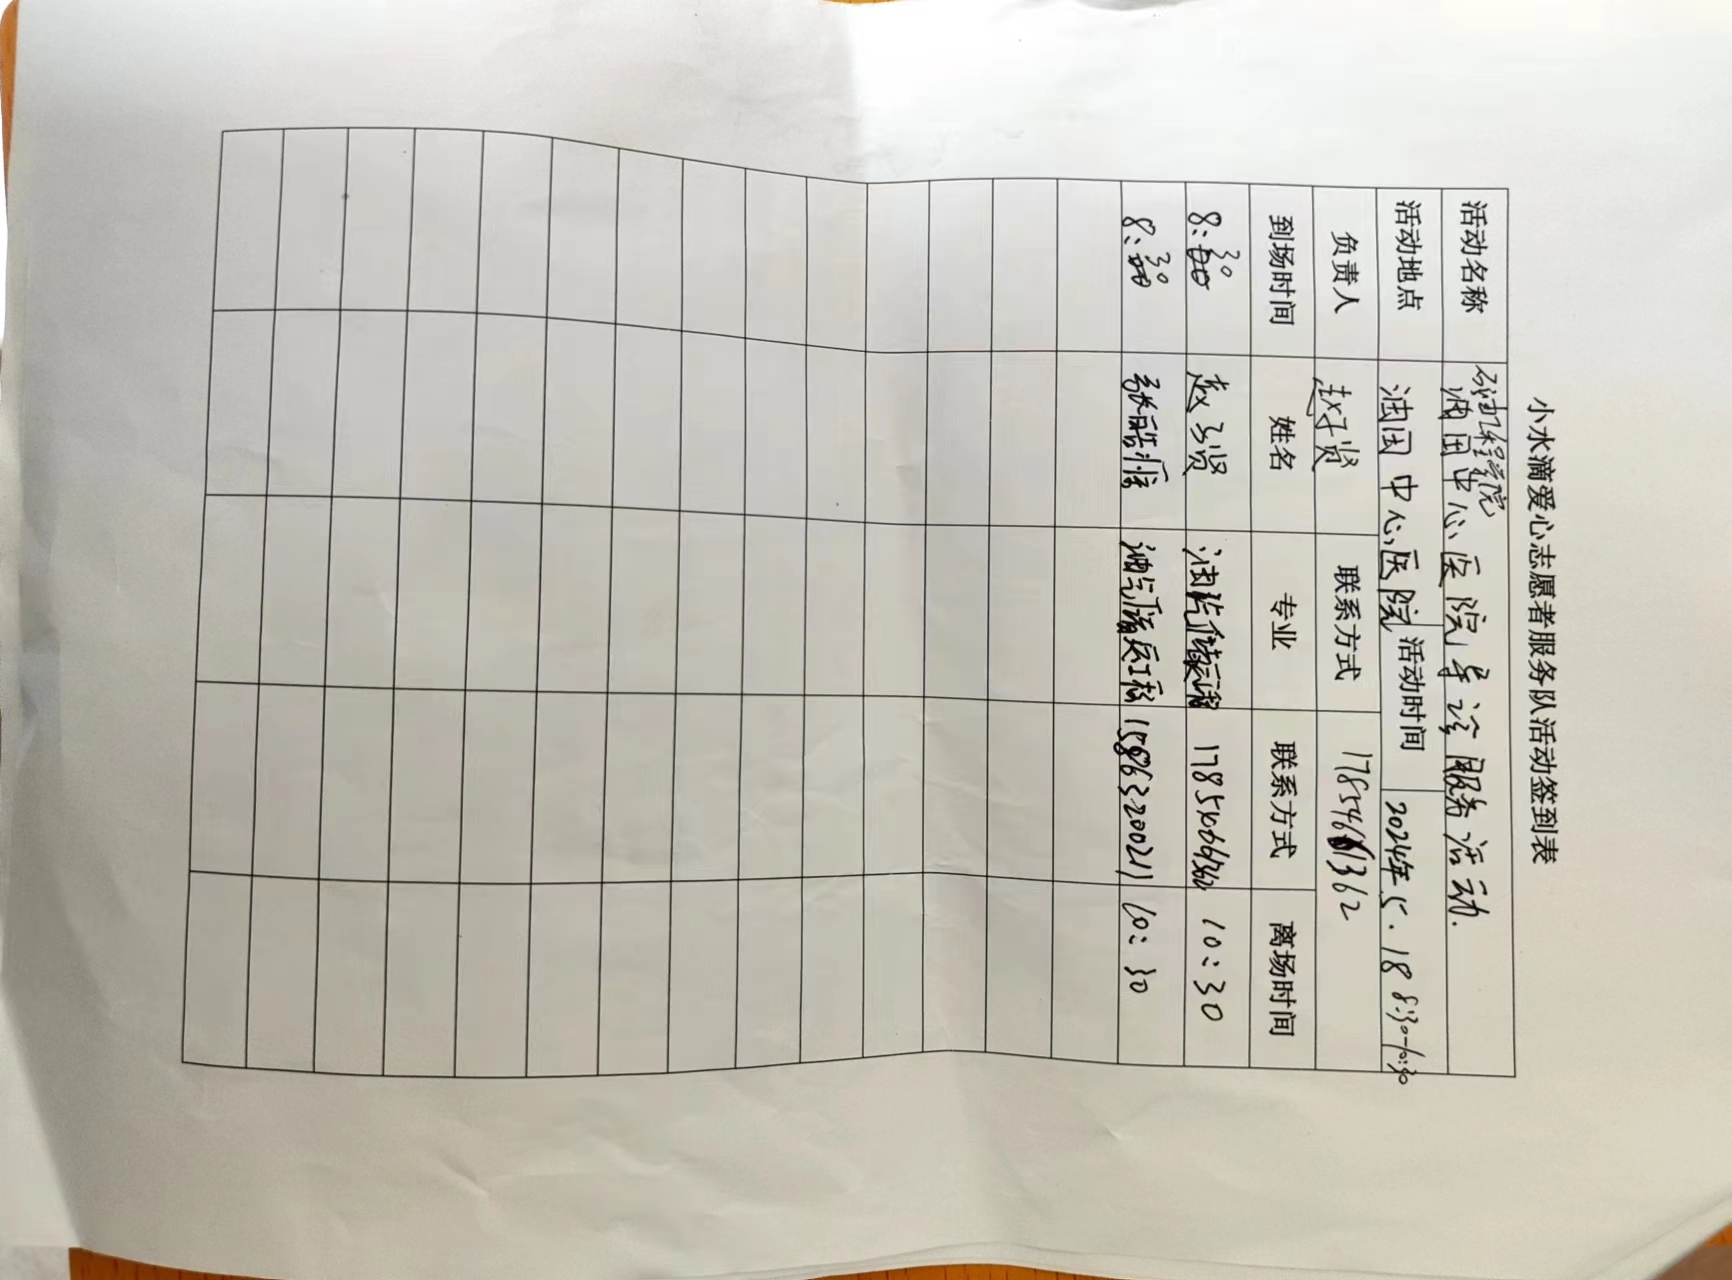 小水滴爱心志愿者服务队活动签到表
活动名称 石油工程学院油田中心医院导诊服务活动.
活动地点 油田中心医院 活动时间 2024年5.18 8:30-10:30
负责人 赵子贤 联系方式 17854661362
到场时间 姓名 专业 联系方式 离场时间
8:30 赵子贤 17854661362 10:30
8:30 油气储运工程 15863220021 10:30